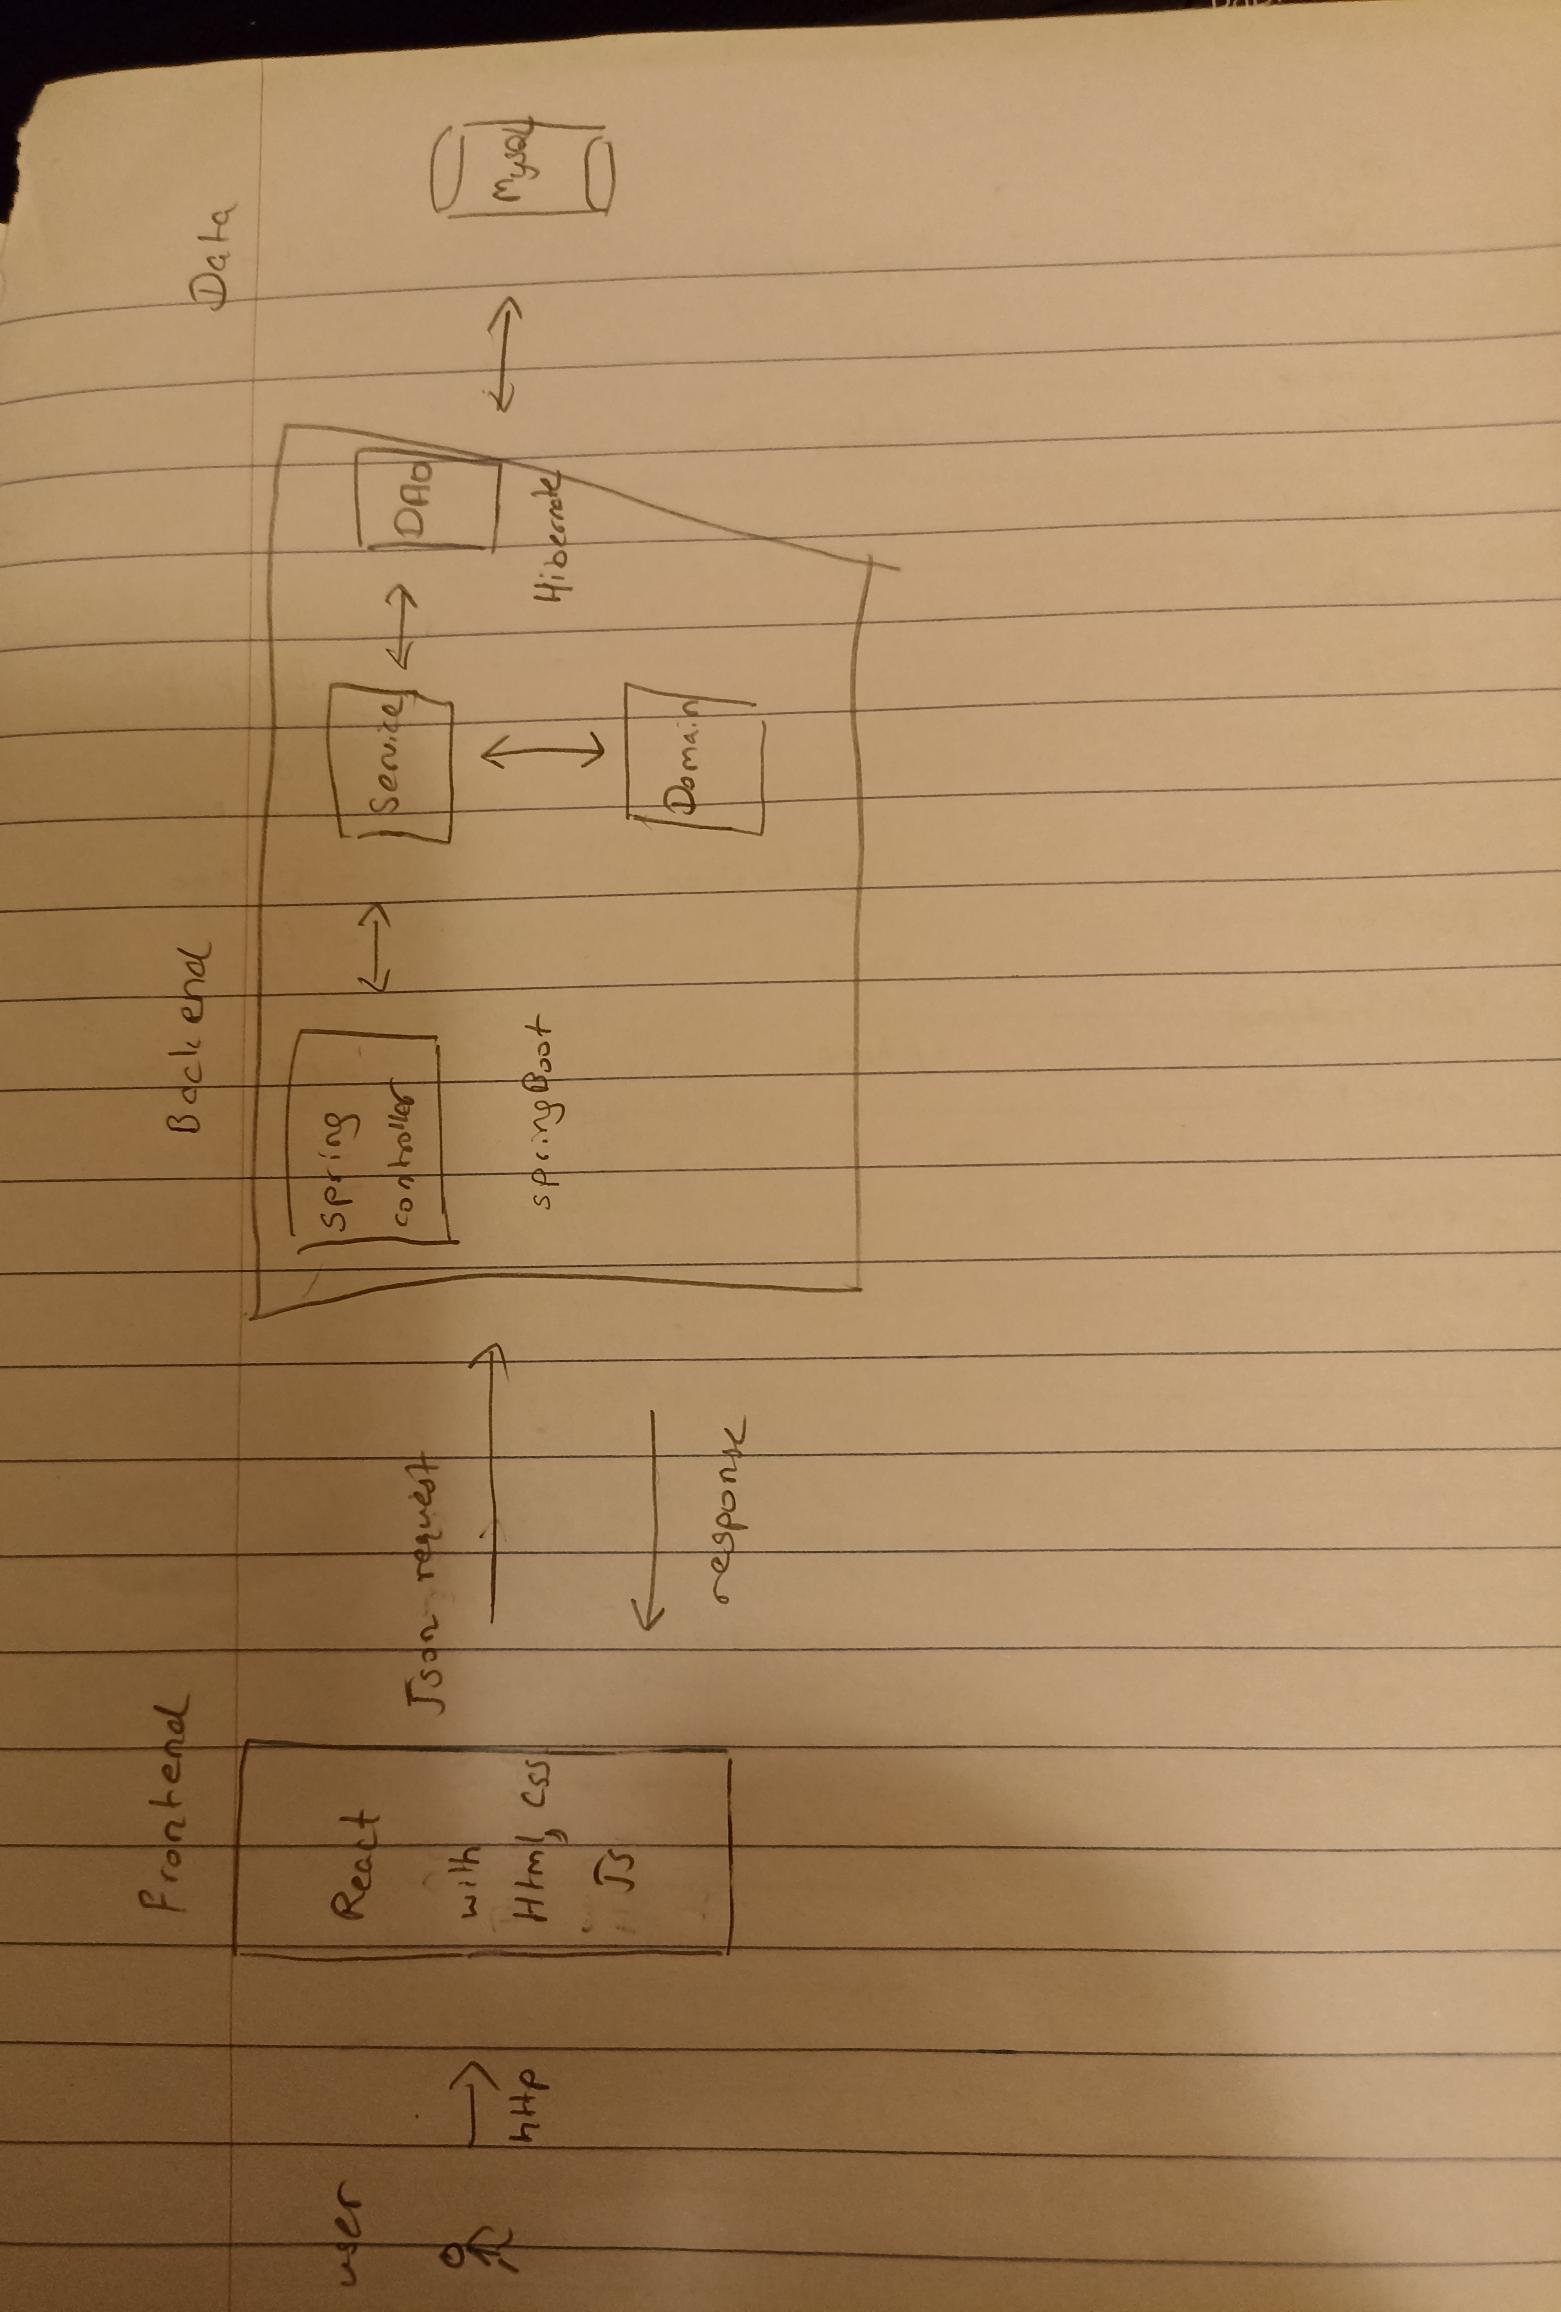 user
http
Frontend
React
with
Html, css
Js
Json request
response
Backend
spring
controller
springBoot
Service
Domain
DAO
Hibernate
Data
Mysql